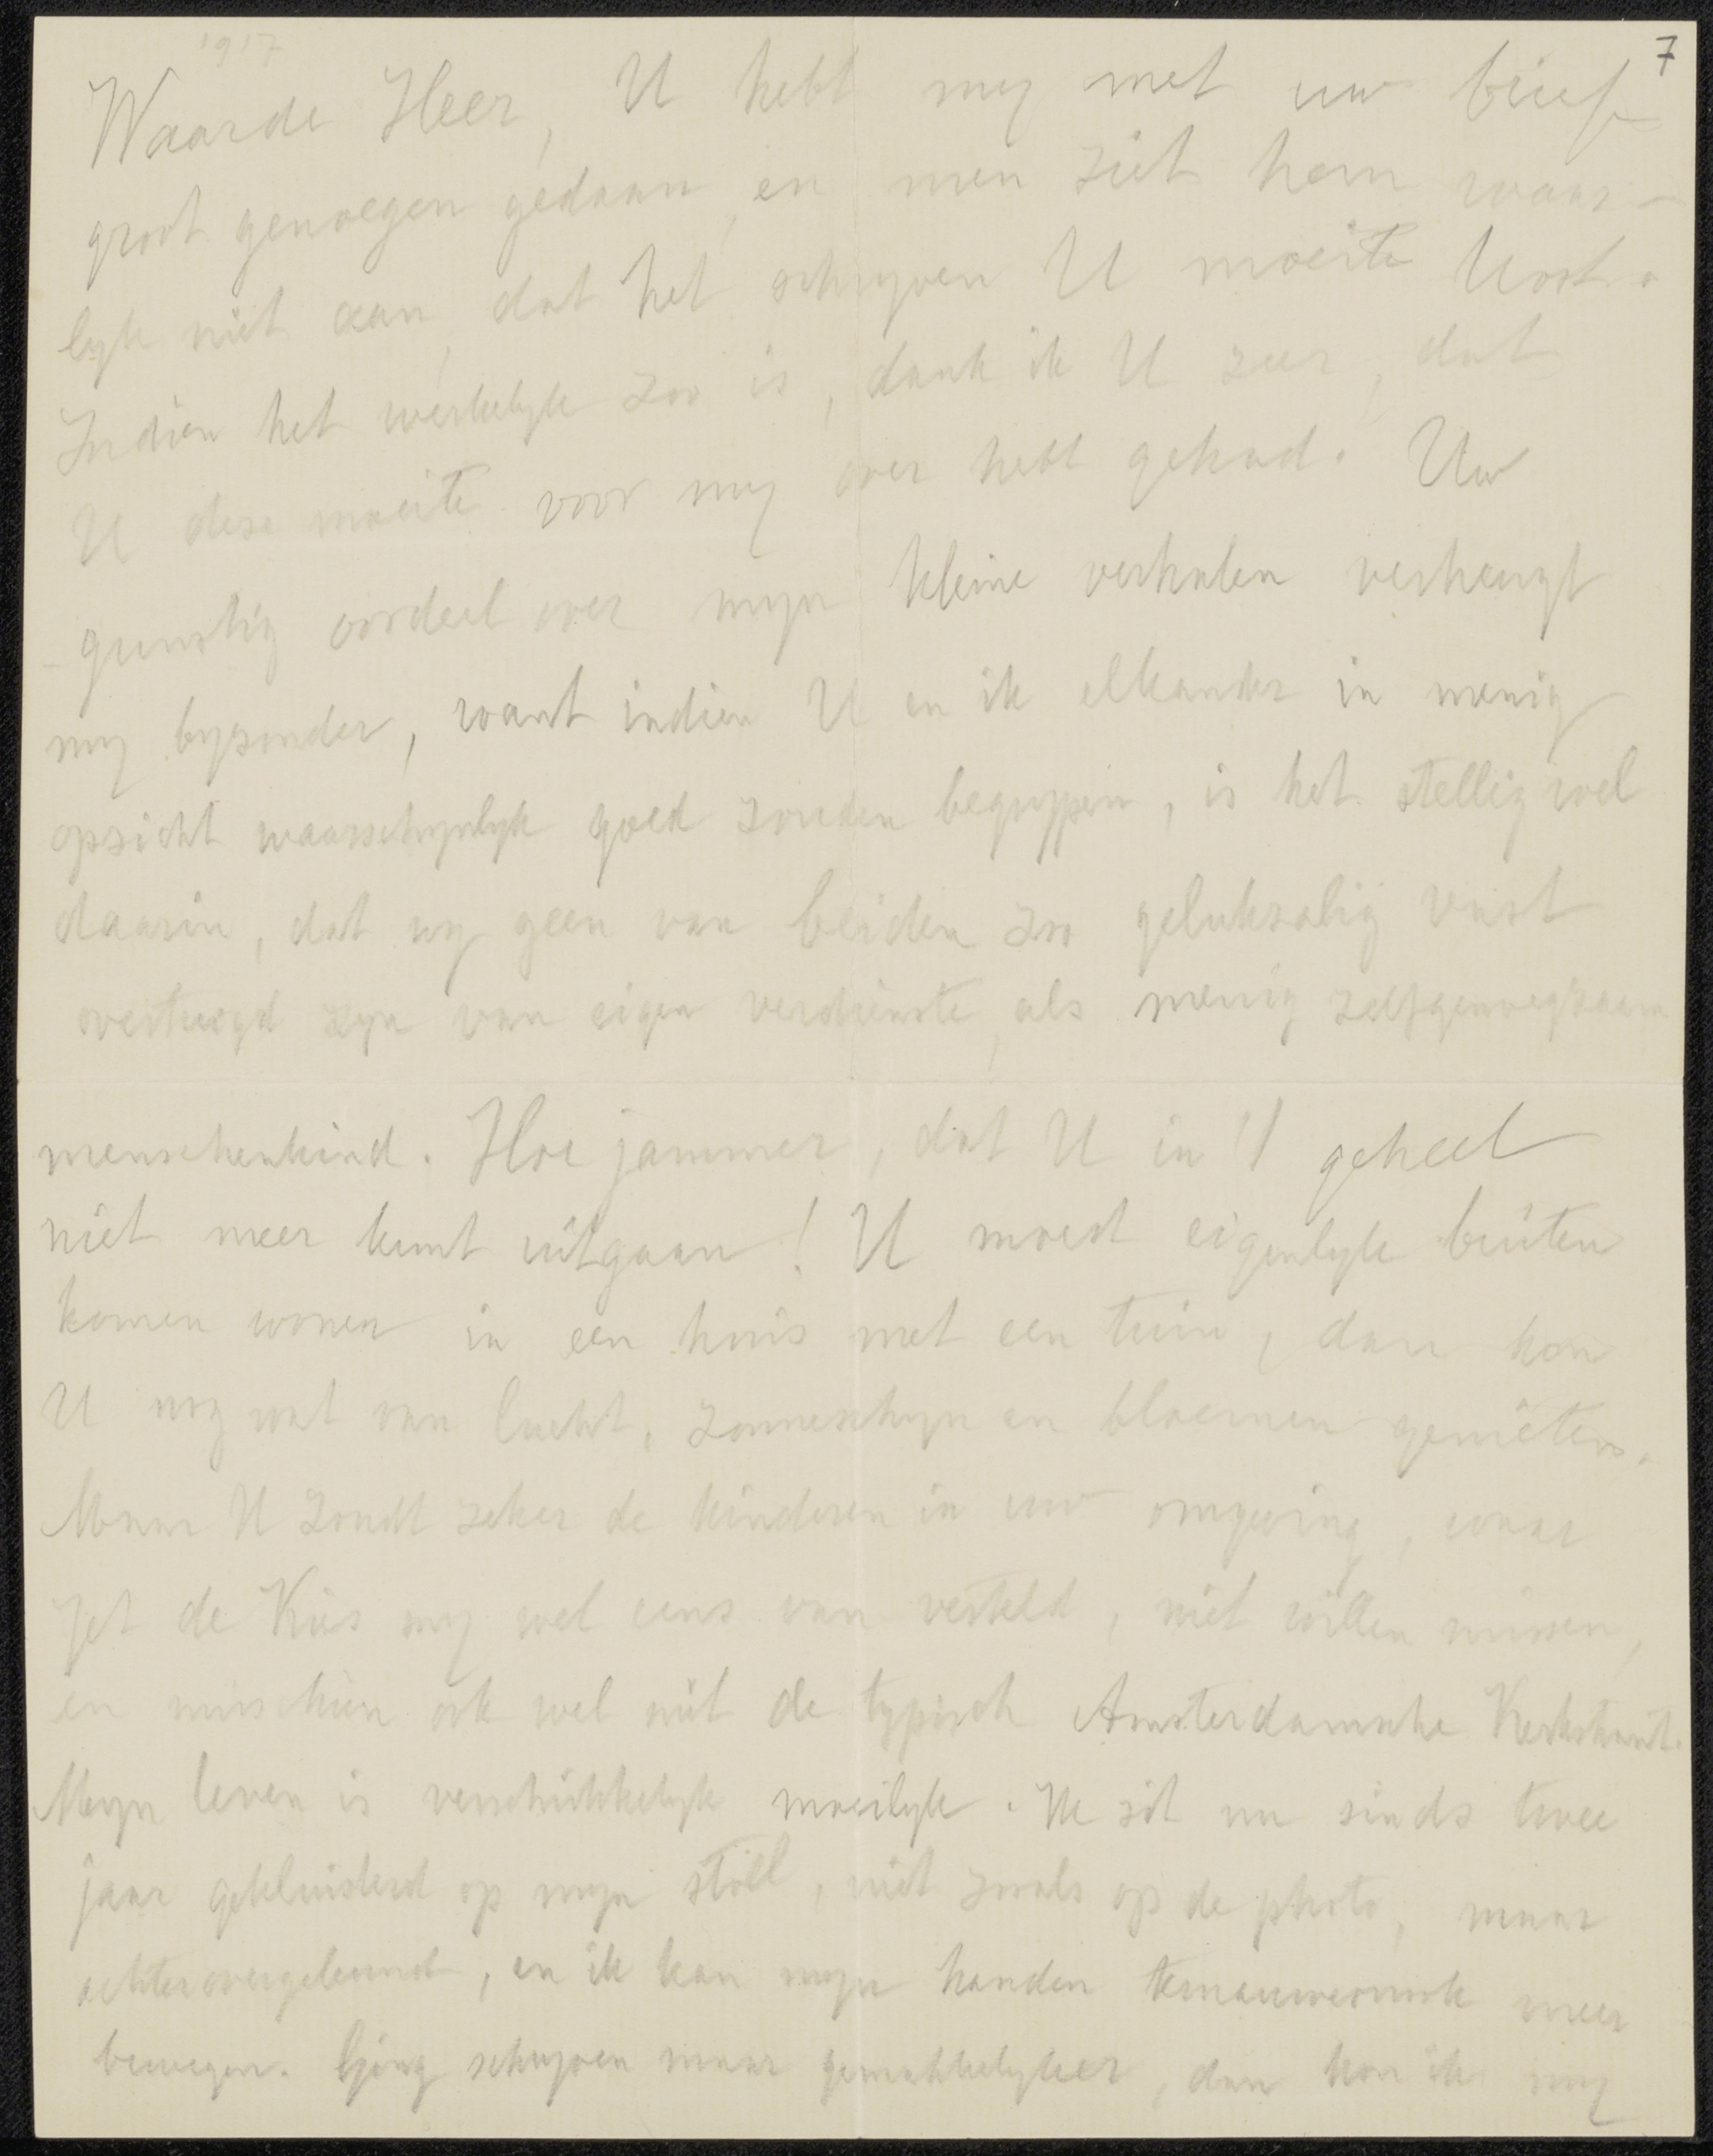 1917
7
Waarde Heer, U hebt my met uw brief
groot genoegen gedaan, en men ziet hem waar-
lyk niet aan, dat het schryven U moeite kost.
Indien het werkelyk zoo is, dank ik U zeer, dat
U deze moeite voor my over hebt gehad. Uw
gunstig oordeel over myn kleine verhalen verheugt
my byzonder, want indien U en ik elkander in menig
opzicht waarschynlyk goed zouden begrypen, is het stellig wel
daarin, dat wy geen van beiden zoo gelukzalig vast
overtuigd zyn van eigen verdienste, als menig zelfgenoegzaam
menschenkind. Hoe jammer, dat U in 't geheel
niet meer kunt uitgaan! U moest eigenlyk buiten
komen wonen in een huis met een tuin, dan kon
U nog wat van lucht, zonneschyn en bloemen genieten.
Maar U zoudt zeker de kinderen in uw omgeving, waar
Jet de Kies my wel eens van vertelt, niet willen missen,
en misschien ook wel niet de typisch Amsterdamsche Kerkstraat.
Myn leven is verschrikkelyk moeilyk. Ik zit nu sinds twee
jaar gekluisterd op myn stoel, niet zooals op de photo, maar
achterovergeleund, en ik kan myn handen ternauwernook meer
bewegen. Ging schryven maar gemakkelyker, dan kon ik my